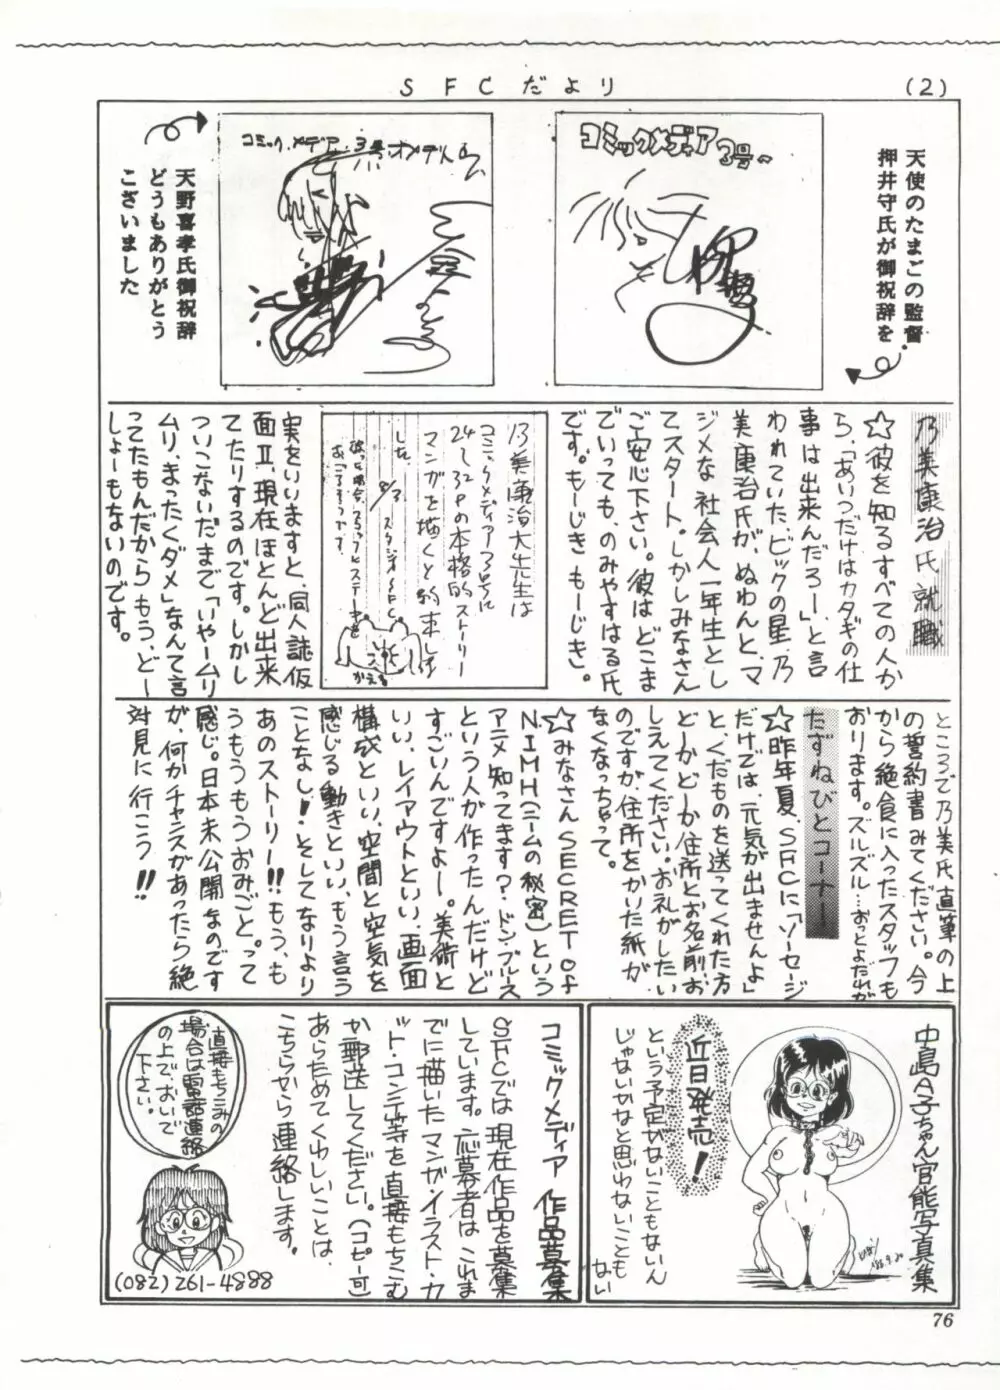 SFCだより
(2)
天使のたまごの監督
押井守氏が御祝辞を
コミックメディア3号〜
コミック.メデア.3号.オメデトウ
天野喜孝氏御祝辞
どうもありがとう
ございました
乃美康治氏就職
☆彼を知るすべての人か
ら、「あいつだけはカタギの仕
事は出来んだろー」、と言
われていた、ビックの星、乃
美康治氏が、ぬわんと、マ
ジメな社会人一年生とし
てスタート。しかしみなさん
ご安心下さい。彼はどこま
でいっても、のみやすはる氏
です。もーじき もーじき。
乃美康治大先生は
コミックメディア3号に
24〜32Pの本格的ストーリー
マンガを描くと約束しま
した。
8/3 スタジオSFC
かえる
実をいいますと、同人誌仮
面Ⅱ、現在ほとんど出来
てたりするのです。しかし
ついこないだまで「いやームリ
ムリ、まったくダメ」なんて言
ってたもんだからもう、どー
しょーもないのです。
ところで乃美氏直筆の上
の誓約書みてください。今
から絶食に入ったスタッフも
おります。ズルズル…おっとよだれが
たずねびとコーナー
☆昨年夏、SFCに「ソーセージ
だけでは、元気が出ませんよ」
と、くだものを送ってくれた方
どーかどーか住所とお名前、お
しえてください。お礼がしたい
のですが、住所をかいた紙が
なくなっちゃって。
☆みなさんSECRET of
N.I.M.H(ニームの秘密)という
アニメ知ってます？ドン・ブルース
という人が作ったんだけど
すごいんですよー。美術と
いい、レイアウトといい、画面
構成といい、空間と空気を
感じる動きといい、もう言う
ことなし！、そしてなりより
あのストーリー!!もう、も
うもうもうおみごと。って
感じ。日本未公開なのです
が、何かチャンスがあったら絶
対見に行こう!!
中島A子ちゃん官能写真集
近日発売！
という予定がないこともないん
じゃないかなと思わないことも
ない
'86.9.20
コミックメディア 作品募集
SFCでは現在作品を募集
しています。応募者はこれま
でに描いたマンガ・イラスト・カ
ット・コンテ等を直接もちこむ
か郵送してください。(コピー可)
あらためてくわしいことは、
こちらから連絡します。
直接もちこみの
場合は電話連絡
の上で、おいで
下さい。
(082)261-4888
76